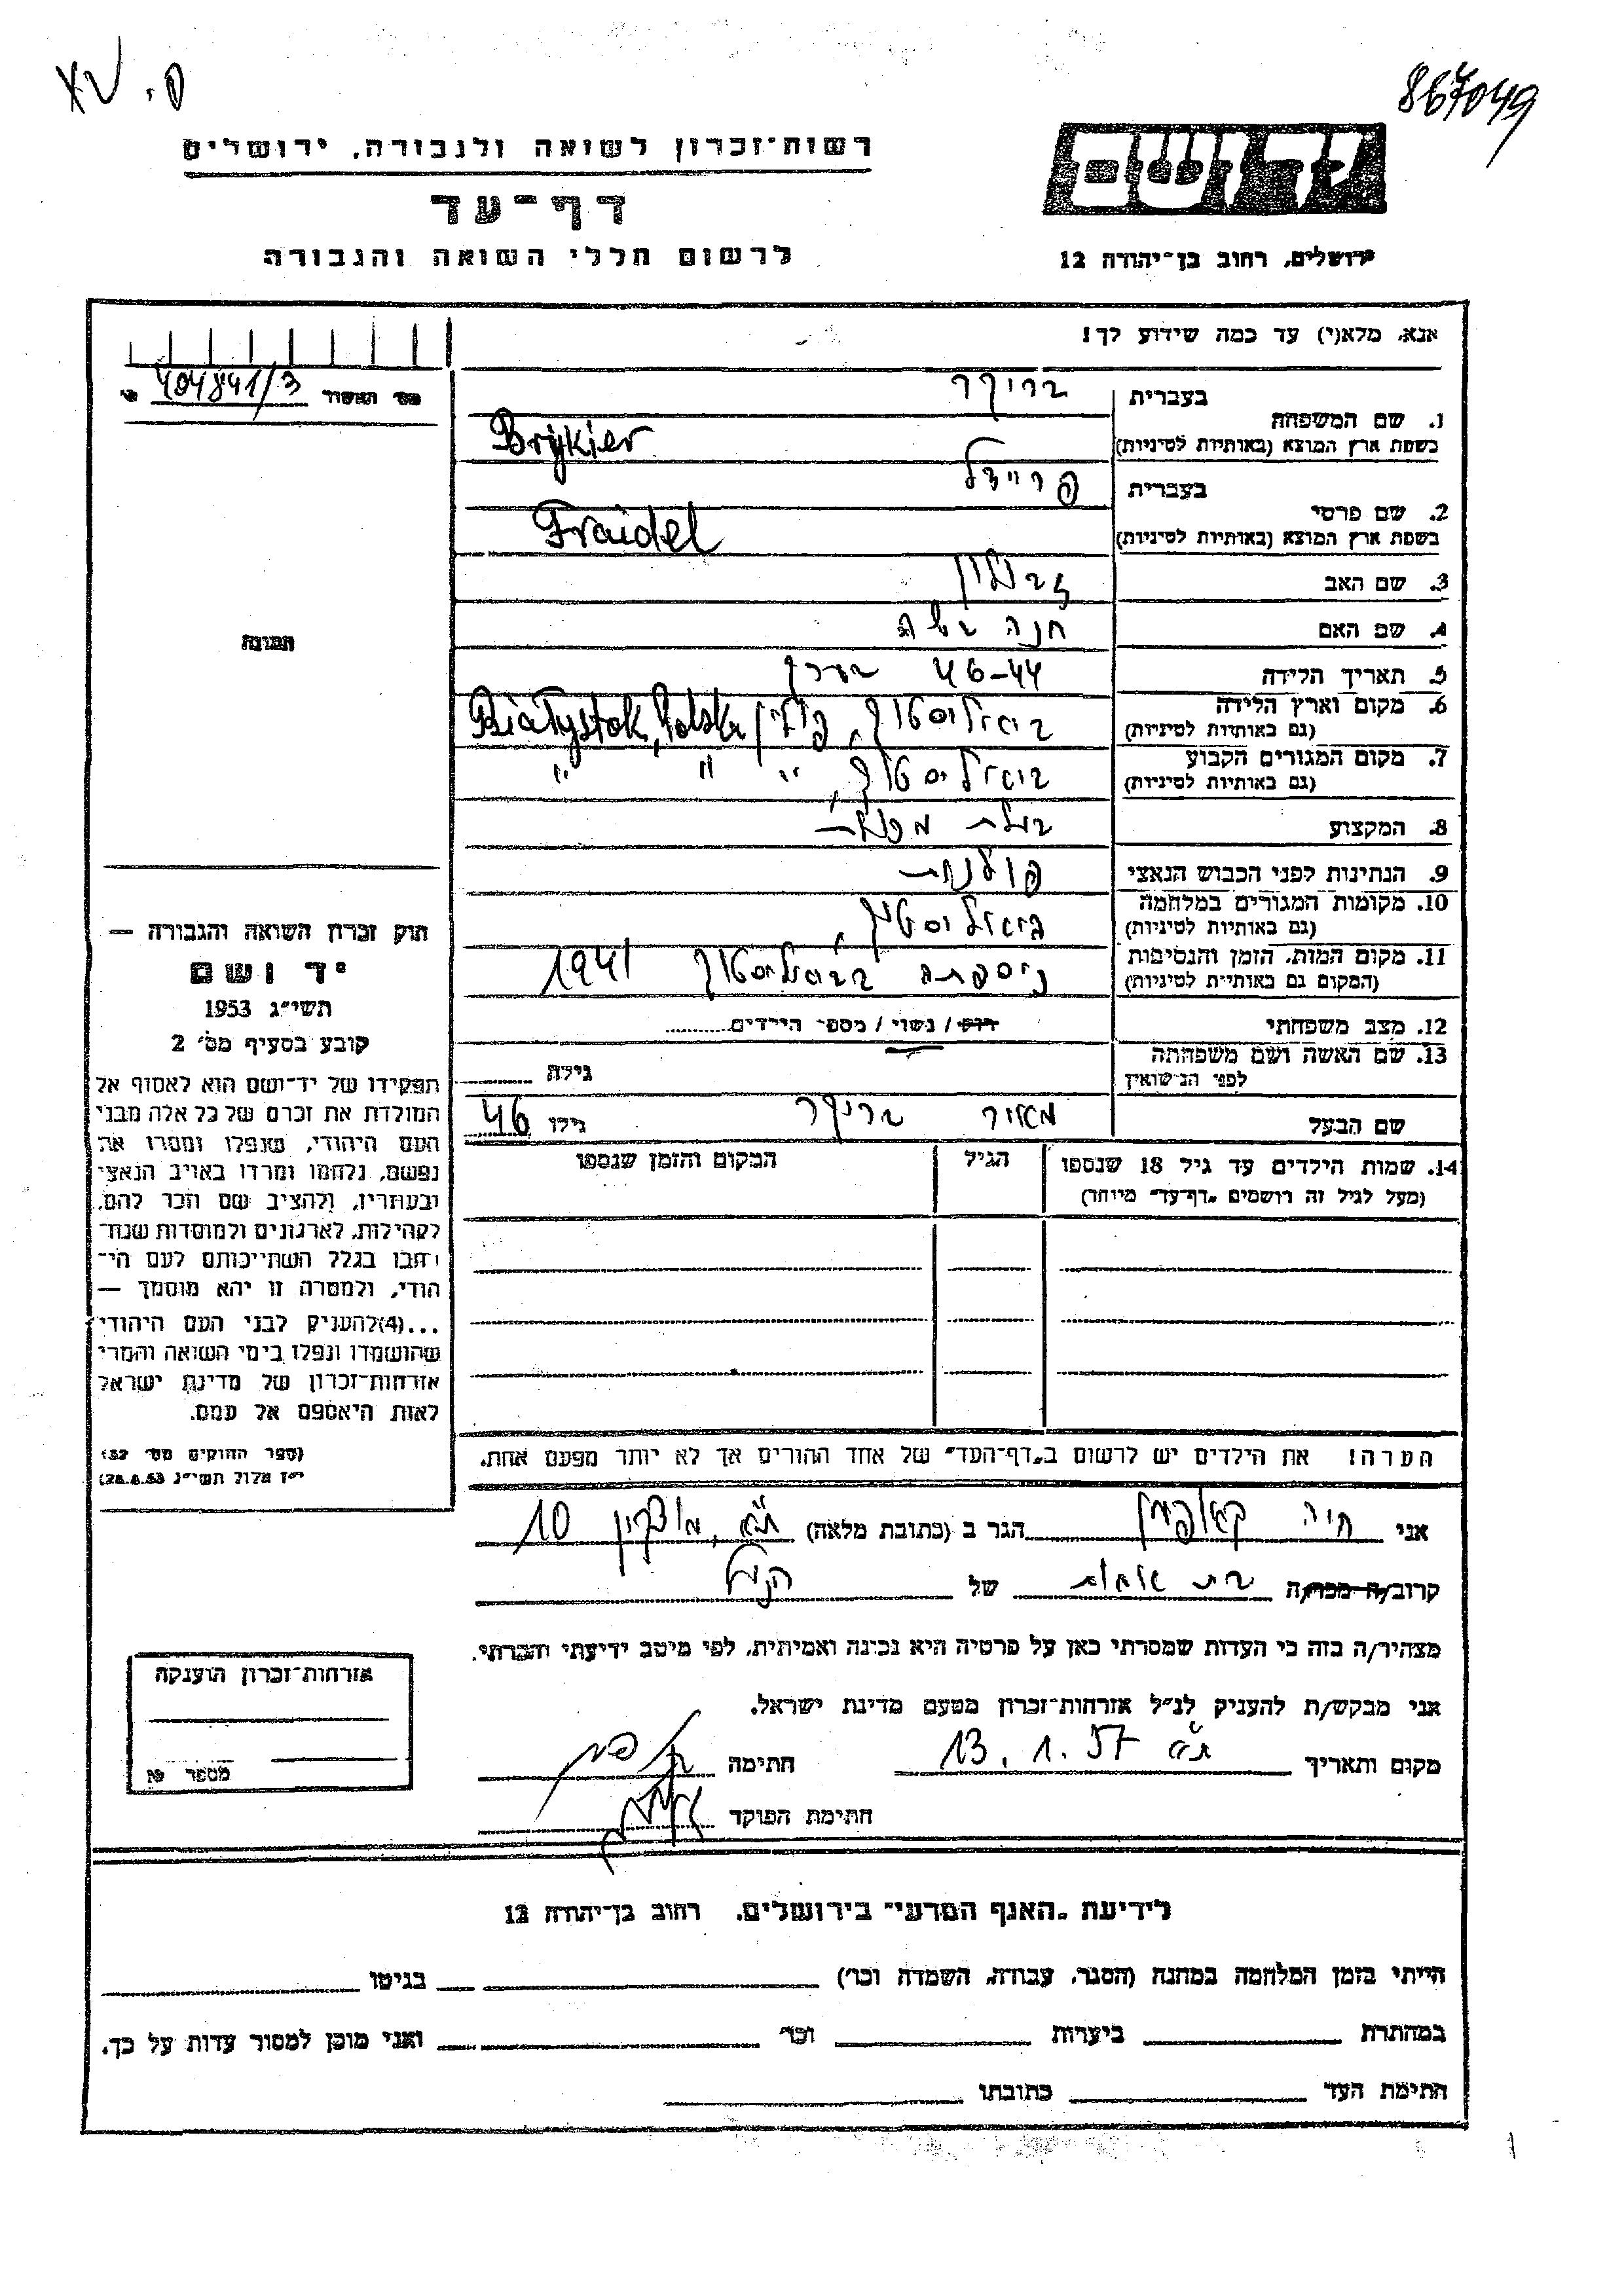 867049
רשות־זכרון לשואה ולגבורה, ירושלים
דף־עד
לרשום חללי השואה והגבורה
ירושלים, רחוב בן־יהודה 12
אנא, מלא(י) עד כמה שידוע לך!
מס' האשור 404841/3
1. שם המשפחה
בעברית בריקר
בשפת ארץ המוצא (באותיות לטיניות) Brykier
2. שם פרטי
בעברית פריידל
בשפת ארץ המוצא (באותיות לטיניות) Fraidel
3. שם האב זבולון
4. שם האם חנה
5. תאריך הלידה 46-44 בערך
6. מקום וארץ הלידה ביאליסטוק, פולין Białystok, Polska
(גם באותיות לטיניות)
7. מקום המגורים הקבוע ביאליסטוק, " " "
(גם באותיות לטיניות)
8. המקצוע בעלת
9. הנתינות לפני הכבוש הנאצי פולנית
10. מקומות המגורים במלחמה ביאליסטוק,
(גם באותיות לטיניות)
11. מקום המות, הזמן והנסיבות ניספתה בביאליסטוק 1941
(המקום גם באותיות לטיניות)
12. מצב משפחתי רווק / נשוי / מספר הילדים
13. שם האשה ושם משפחתה
לפני הנישואין גילה
שם הבעל מאיר בריקר גילו 46
14. שמות הילדים עד גיל 18 שנספו הגיל המקום והזמן שנספו
(מעל לגיל זה רושמים „דף־עד" מיוחד)
הערה! את הילדים יש לרשום ב„דף־העד" של אחד ההורים אך לא יותר מפעם אחת.
התמונה
חוק זכרון השואה והגבורה —
יד ושם
תשי"ג 1953
קובע בסעיף מס' 2
תפקידו של יד־ושם הוא לאסוף אל
המולדת את זכרם של כל אלה מבני
העם היהודי, שנפלו ומסרו את
נפשם, נלחמו ומרדו באויב הנאצי
ובעוזריו, ולהציב שם וזכר להם,
לקהילות, לארגונים ולמוסדות שנח־
רבו בגלל השתייכותם לעם הי־
הודי, ולמטרה זו יהא מוסמך —
...(4)להעניק לבני העם היהודי
שהושמדו ונפלו בימי השואה והמרי
אזרחות־זכרון של מדינת ישראל
לאות היאספם אל עמם.
(ספר החוקים מס' 132
י"ז אלול תשי"ג 28.8.53)
אני חיה קאופמן הגר ב (כתובת מלאה) ת"א, 10
קרוב/ה מכר/ה בת של הנ"ל
מצהיר/ה בזה כי העדות שמסרתי כאן על פרטיה היא נכונה ואמיתית, לפי מיטב ידיעתי והכרתי.
אני מבקש/ת להעניק לנ"ל אזרחות־זכרון מטעם מדינת ישראל.
מקום ותאריך ת"א 13.1.57 חתימה
חתימת הפוקד
אזרחות־זכרון הוענקה
מספר
לידיעת „האגף המדעי" בירושלים, רחוב בן־יהודה 12
הייתי בזמן המלחמה במחנה (הסגר, עבודה, השמדה וכו') בגיטו
במחתרת ביערות וכו' ואני מוכן למסור עדות על כך.
חתימת העד כתובתו